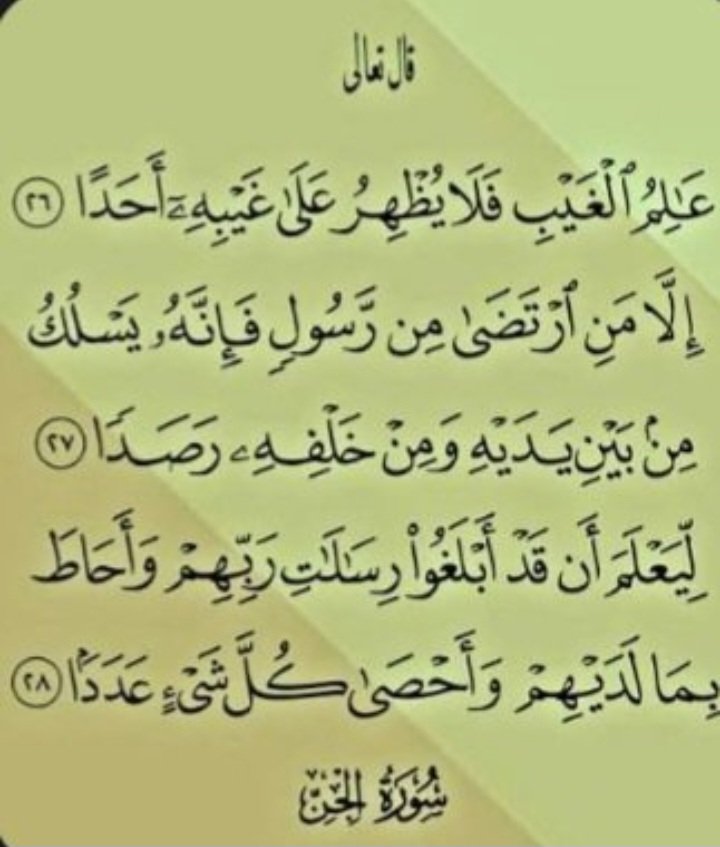 قال تعالى
عَٰلِمُ ٱلْغَيْبِ فَلَا يُظْهِرُ عَلَىٰ غَيْبِهِۦٓ أَحَدًا ٢٦
إِلَّا مَنِ ٱرْتَضَىٰ مِن رَّسُولٍ فَإِنَّهُۥ يَسْلُكُ
مِنۢ بَيْنِ يَدَيْهِ وَمِنْ خَلْفِهِۦ رَصَدًا ٢٧
لِّيَعْلَمَ أَن قَدْ أَبْلَغُوا۟ رِسَٰلَٰتِ رَبِّهِمْ وَأَحَاطَ
بِمَا لَدَيْهِمْ وَأَحْصَىٰ كُلَّ شَىْءٍ عَدَدًۢا ٢٨
سُورَةُ الْجِنِّ